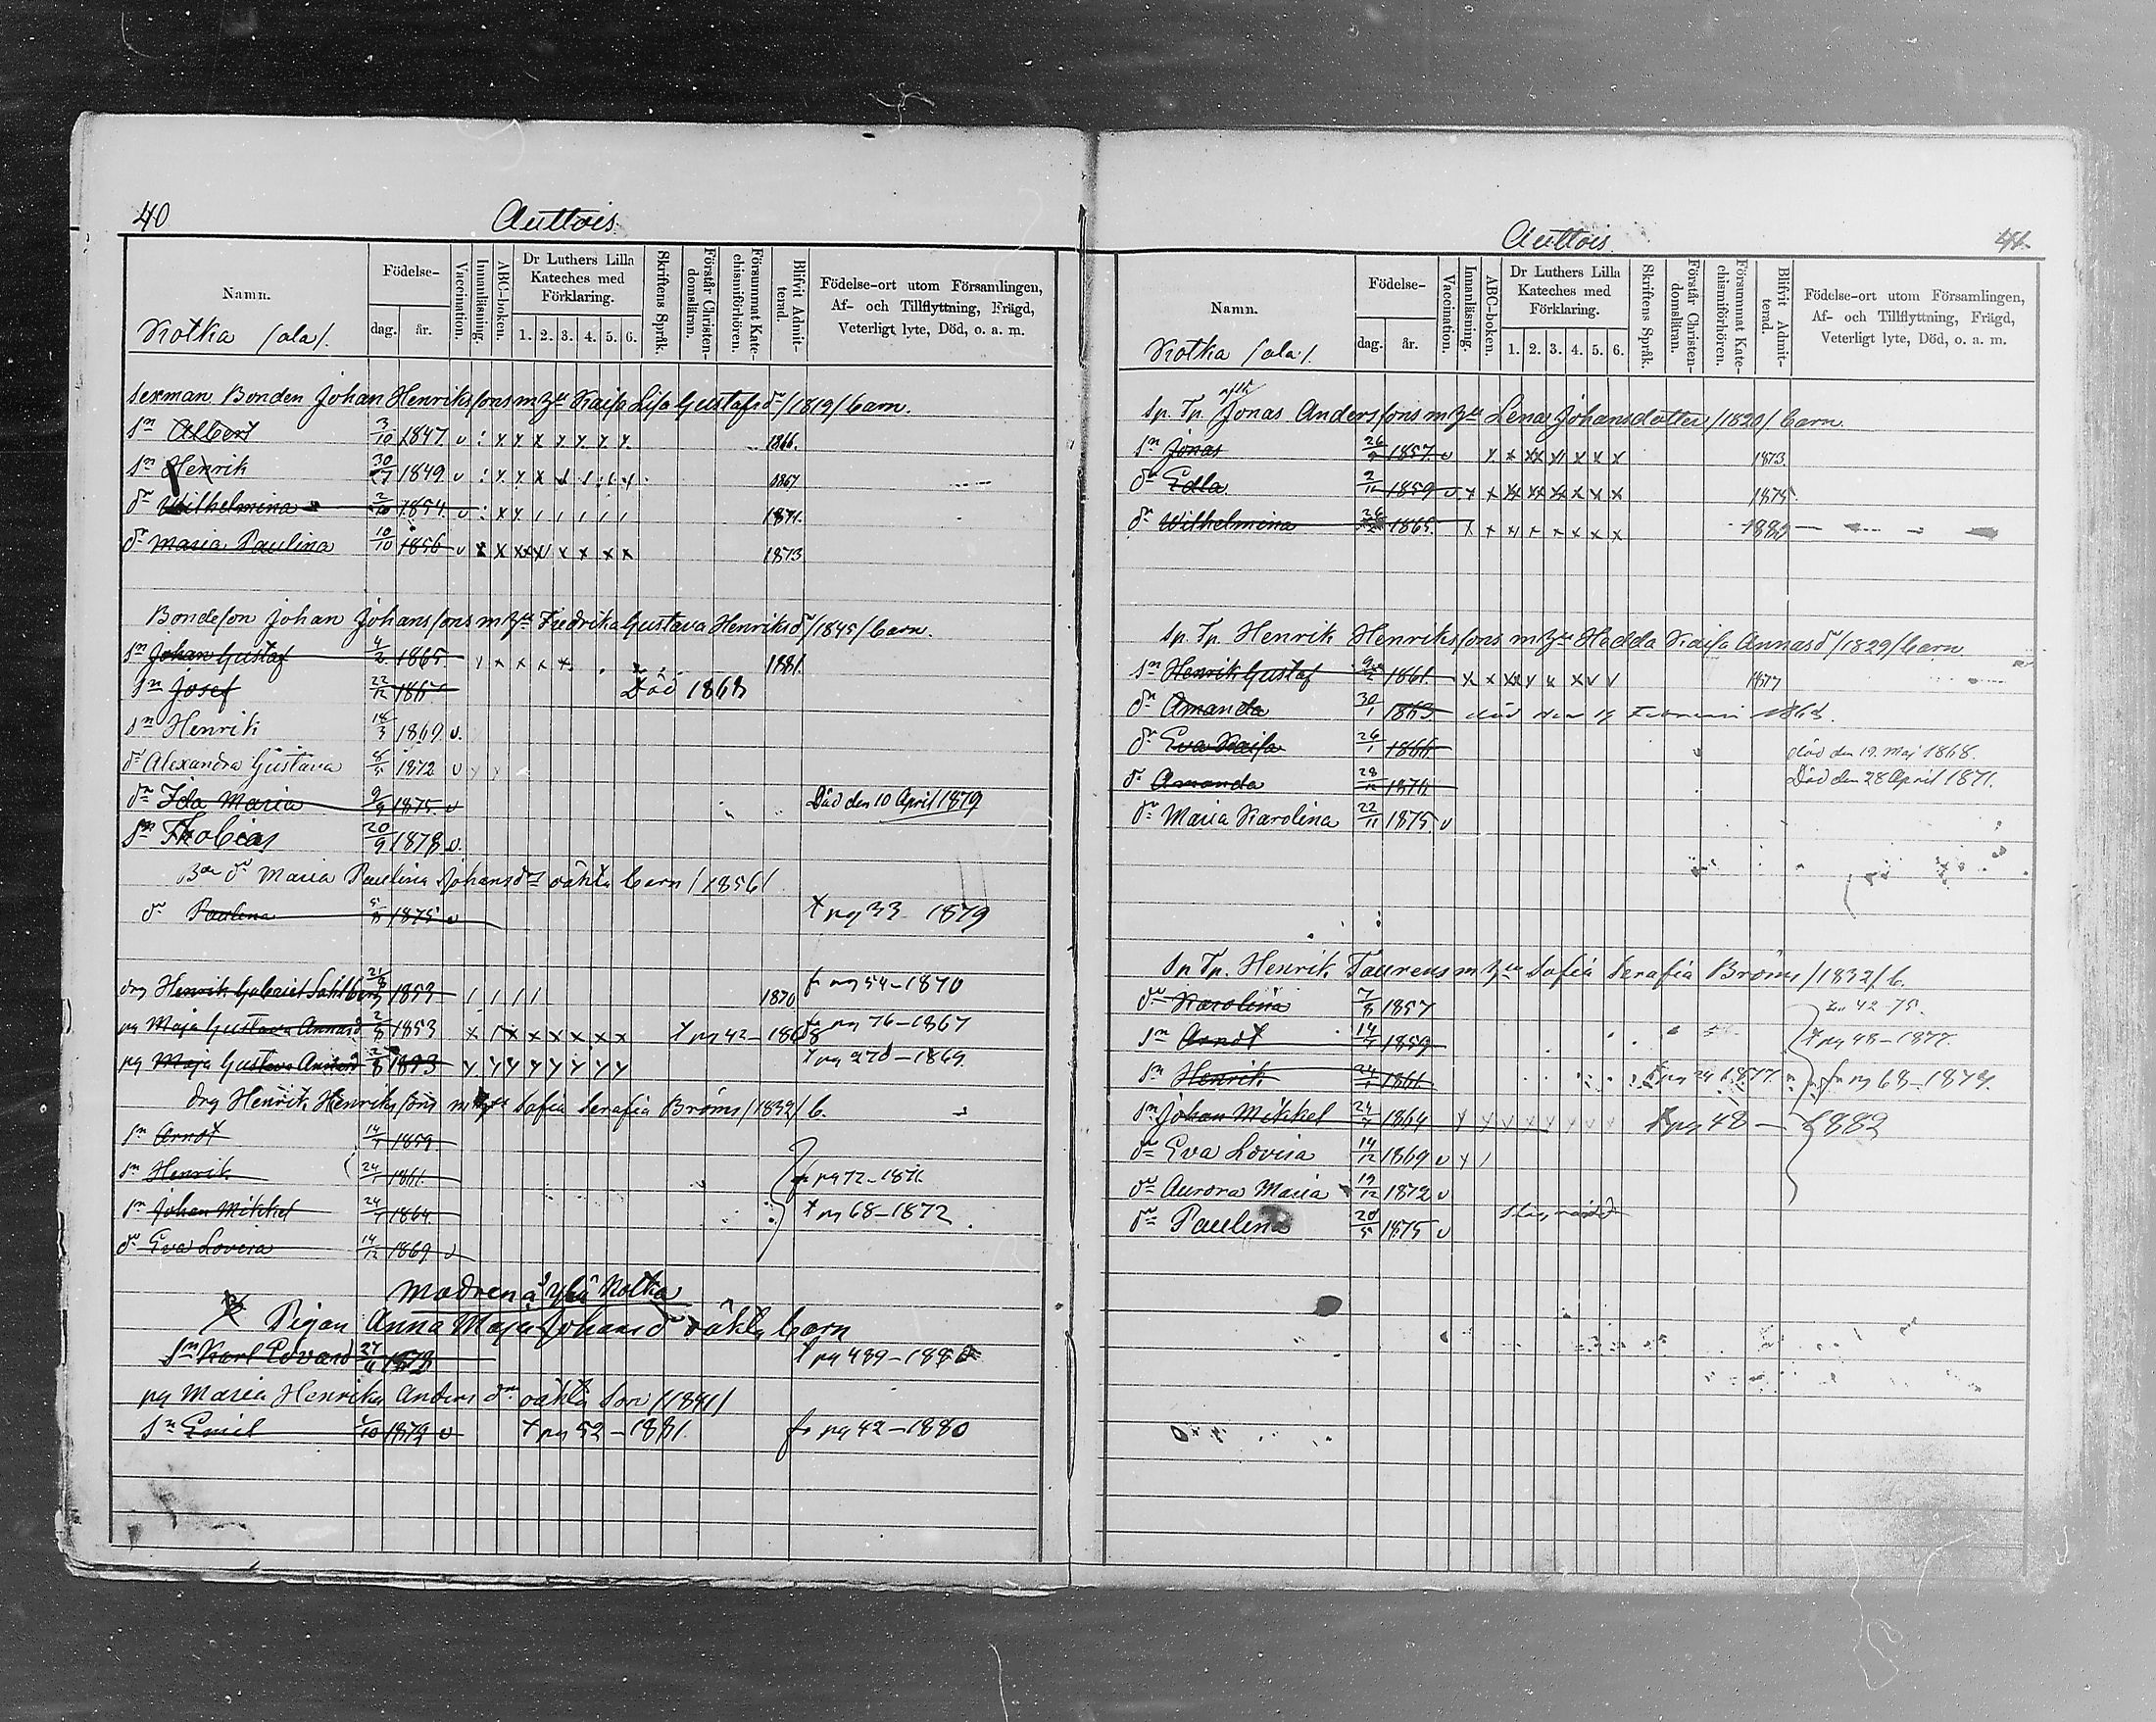 40
Auttois.
Namn.
Födelse-
dag. år.
Vaccination.
Innanläsning.
ABC-boken.
Dr Luthers Lilla Kateches med Förklaring.
1. 2. 3. 4. 5. 6.
Skriftens Språk.
Förstår Christendomsläran.
Försummat Katechismiförhören.
Blifvit Admitterad.
Födelse-ort utom Församlingen,
Af- och Tillflyttning, Frägd,
Veterligt lyte, Död, o. a. m.
Kotka /ala/.
Sexman Bonden Johan Henrikssons m hu Kaisa Lisa Gustafsdr /1819/ barn.
sn Albert 3/10 1847 v : x x x x x x x 1866.
sn Henrik 1849 v 1867
dr Wilhelmina 2/10 1854 v 1871.
dr Maria Paulina 10/10 1856 v x x x x x x x 1873
Bondeson Johan Johanssons m hu Fredrika Gustava Henriksdr /1845/ barn.
sn Johan Gustaf 4/2 1865 1881.
sn Josef 22/12 Död 1868
sn Henrik 18/3 1869 v.
dr Alexandra Gustava 1872 v
dr Ida Maria 9/9 1875 v Död den 10 April 1879
sn Thobias 20/9 1878 v.
dr Maria Paulina Johansdrs oäkta barn /1856/
dr Paulina 1875 v pg 33 1879
drg Henrik Gabriel Sahlberg 1853 / / / / 1870 fr pg 54-1870
pg Maja Gustava Annasd 2/8 1853 x x x x x x x pg 42-1868 fr pg 76-1867
pg Maja Gustava Annasd 2/8 1853 pg 270-1869.
drg Henrik Henrikssons m hu Sofia Serafia Broms /1832/ b.
sn Arndt 1859.
sn Henrik 1861. fr pg 72-1871
sn Johan Mikkel 1864. pg 68-1872.
dr Eva Lovisa 14/12 1869 v
Modren å ylä Kotka
Pigan Anna Maja Johansdr oäkta barn
sn Karl Edvard 1878 pg 489-1880
pg Maria Henrika Andersdrs oäkta son /1841/
sn Emil 1879 v pg 52-1881. fr pg 42-1880
Auttois.
41.
Namn.
Födelse-
dag. år.
Vaccination.
Innanläsning.
ABC-boken.
Dr Luthers Lilla Kateches med Förklaring.
1. 2. 3. 4. 5. 6.
Skriftens Språk.
Förstår Christendomsläran.
Försummat Katechismiförhören.
Blifvit Admitterad.
Födelse-ort utom Församlingen,
Af- och Tillflyttning, Frägd,
Veterligt lyte, Död, o. a. m.
Kotka /ala/.
Sp. Tp. Jonas Anderssons m hu Lena Johansdotter /1820/ barn.
sn Jonas 1857 v 1873.
dr Edla 2/11 1859 v 1875
dr Wilhelmina 1865. 1880
Sp. Tp. Henrik Henrikssons m hu Hedda Kaisa Annasdr /1829/ barn.
sn Henrik Gustaf 1861. 1877
dr Amanda 30/1 1863 död den Februari 1868.
dr Eva Kaisa 26/1 1866. död den 19. Maj 1868.
dr Amanda 28/12 1870 Död den 28 April 1871.
dr Maria Karolina 22/11 1875 v
Sp Tp. Henrik Laurens m hu Sofia Serafia Broms /1832/ b.
dr Karolina 7/8 1857 42-75.
sn Arndt 1859 pg 48-1877.
sn Henrik 1861 pg 24 1877. fr pg 68-1874.
sn Johan Mikkel 1864 pg 48-1882
dr Eva Lovisa 14/12 1869 v
dr Aurora Maria 19/12 1872 v
dr Paulina 20/5 1875 v